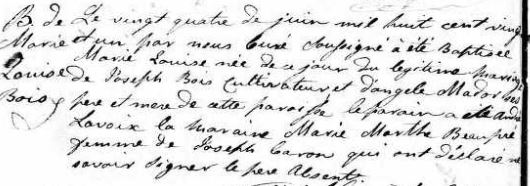 B. de Le vingt quatre de juin mil huit cent vingt
Marie et un par nous Curé Soussigné à été Baptisée
Marie Louise née de ce jour du legitime mariage
Louise de Joseph Bois Cultivateur et d'angele Mador ses
Bois pere et mere de cette paroisse le parain a été André
Lavoix la maraine Marie Marthe Beaupré
femme de Joseph Caron qui ont déclaré ne
savoir signer le pere Absent